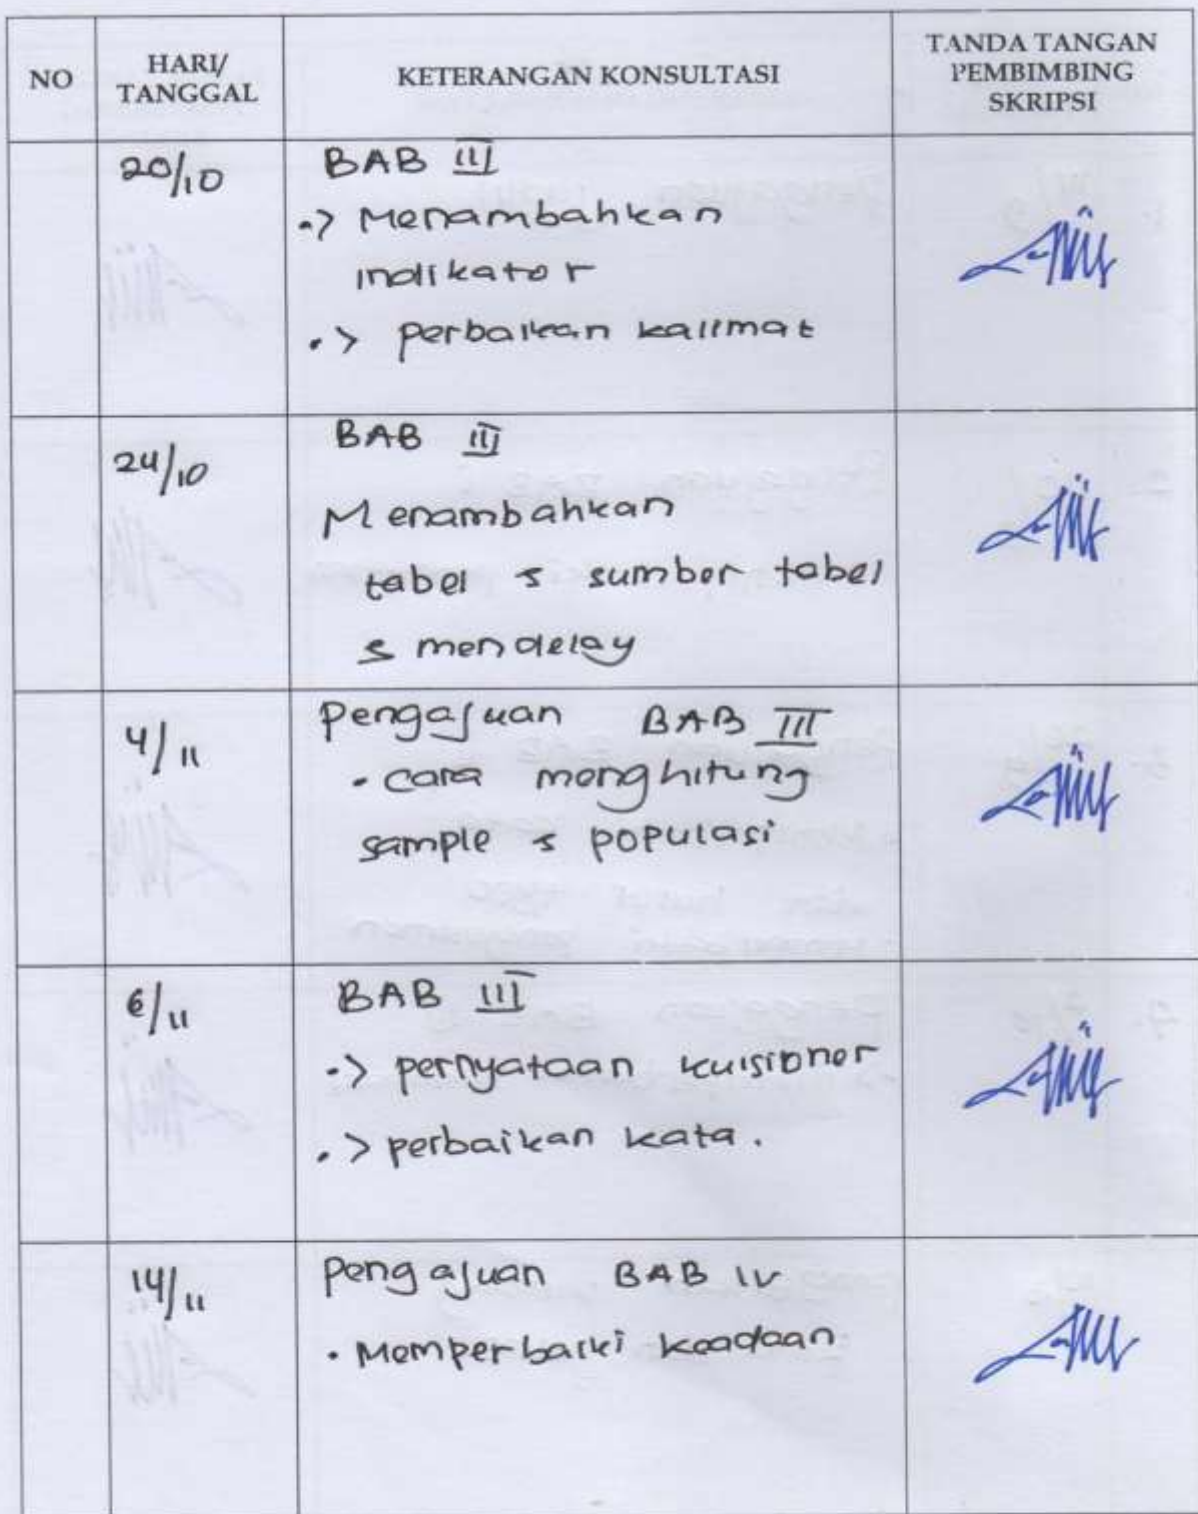 NO
HARI/
TANGGAL
KETERANGAN KONSULTASI
TANDA TANGAN
PEMBIMBING
SKRIPSI
20/10
BAB III
•> Menambahkan
indikator
•> perbaikan kalimat
24/10
BAB III
Menambahkan
tabel & sumber tabel
& mendelay
4/11
Pengajuan BAB III
• cara menghitung
sample & populasi
6/11
BAB III
•> pernyataan kuisioner
•> perbaikan kata.
14/11
pengajuan BAB IV
• Memperbaiki keadaan